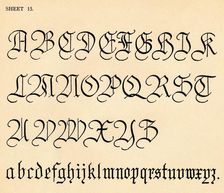 SHEET 15.
ABCDEFGHIJK
LMNOPQRST
UVWXYZ
abcdefghijklmnopqrstuvwxyz.